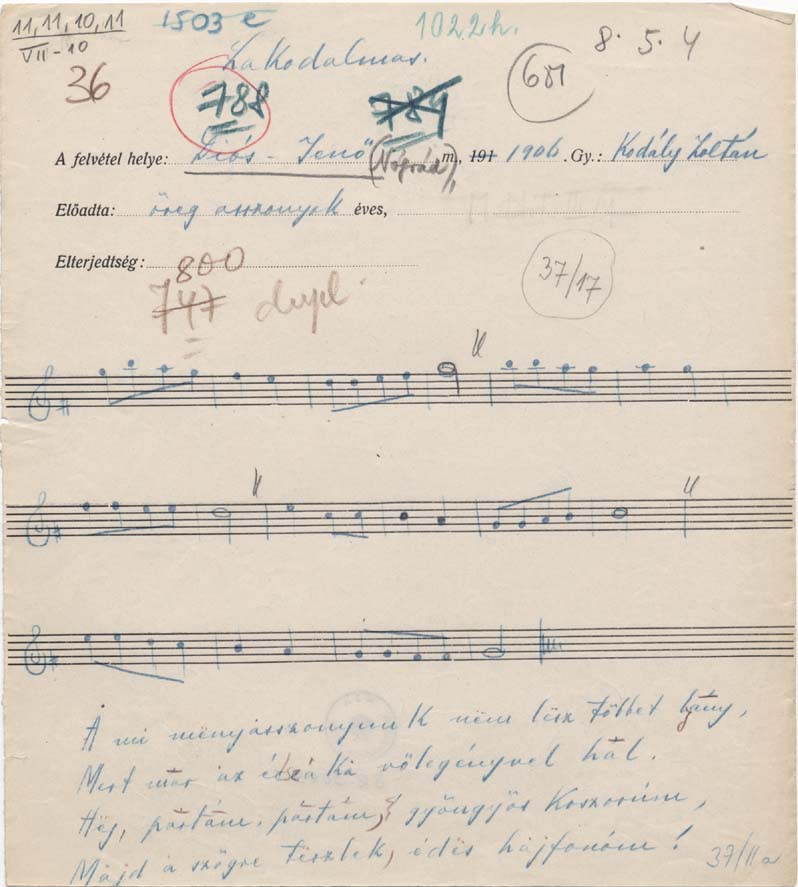 11, 11, 10, 11 1503 e 1022h.
VII-10
Lakodalmas. 8. 5. 4
36 788 784 6M
A felvétel helye: Diós-Jenő (Nógrád) m., 191 1906. Gy.: Kodály Zoltán
Előadta: öreg asszonyok éves,
Elterjedtség: 800
747 dupl. 37/17
A mi mënyasszonyunk nëm lësz többet lány,
Mert már az éccaka vőlegényvel hál.
Hëj, pártám, pártám, gyöngyös koszorúm,
Majd a szögre tëszlek, édës hajfonóm!
37/II a